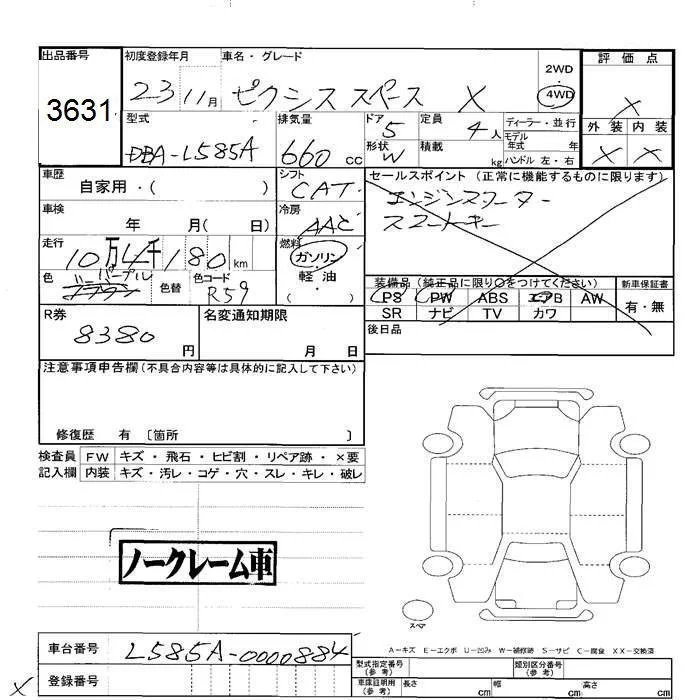 出品番号
3631
初度登録年月
23 11月
車名・グレード
ピクシス スペース X
2WD
・
4WD
評価点
X
外装 内装
X X
型式
DBA-L585A
排気量
660 cc
ドア
5
形状
W
定員
4 人
積載
kg
ディーラー・並行
モデル
年式 年
ハンドル 左・右
車歴
自家用・( )
シフト
CAT
セールスポイント (正常に機能するものに限ります)
エンジンスターター
スマートキー
車検
年 月( 日)
冷房
AAC
走行
10万 千180 km
燃料
ガソリン
軽油
( )
色
パープル
色替
色コード
R59
装備品 (純正品に限り○をつけてください)
PS PW ABS エアB AW
SR ナビ TV カワ
新車保証書
有・無
R券
8380 円
名変通知期限
月 日
後日品
注意事項申告欄(不具合内容等は具体的に記入して下さい)
修復歴 有 〔箇所 〕
検査員
記入欄
FW キズ・飛石・ヒビ割・リペア跡・×要
内装 キズ・汚レ・コゲ・穴・スレ・キレ・破レ
ノークレーム車
スペア
A-キズ E-エクボ U-凹み W-補修跡 S-サビ C-腐食 XX-交換済
車台番号
L585A-0000884
X
登録番号
型式指定番号
(参考)
類別区分番号
(参考)
車庫証明用
(参考)
長さ cm
幅 cm
高さ cm